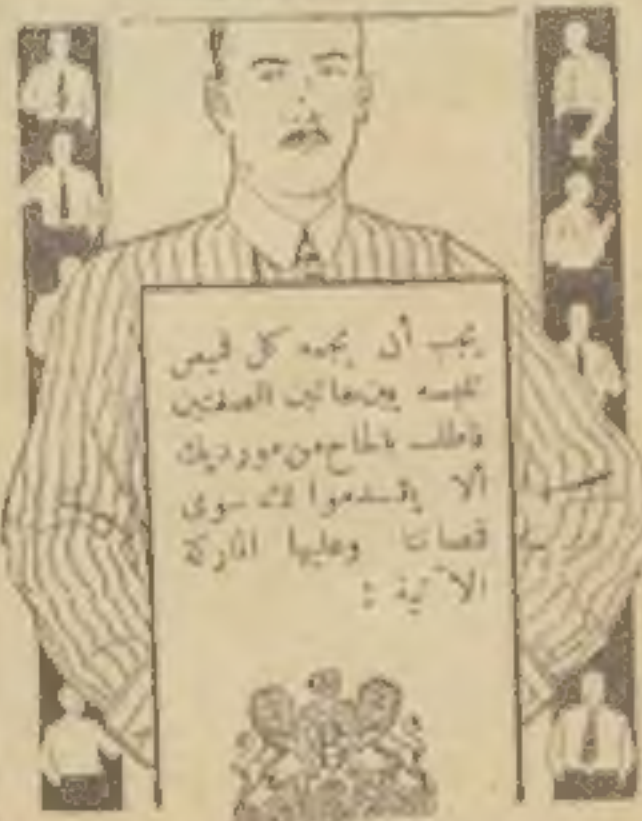 يجب أن يجمع كل قميص
تلبسه بين هاتين الصفتين
فاطلب بالحاح من مورديك
ألا يقدموا لك سوى
قمصانا وعليها الماركة
الآتية :